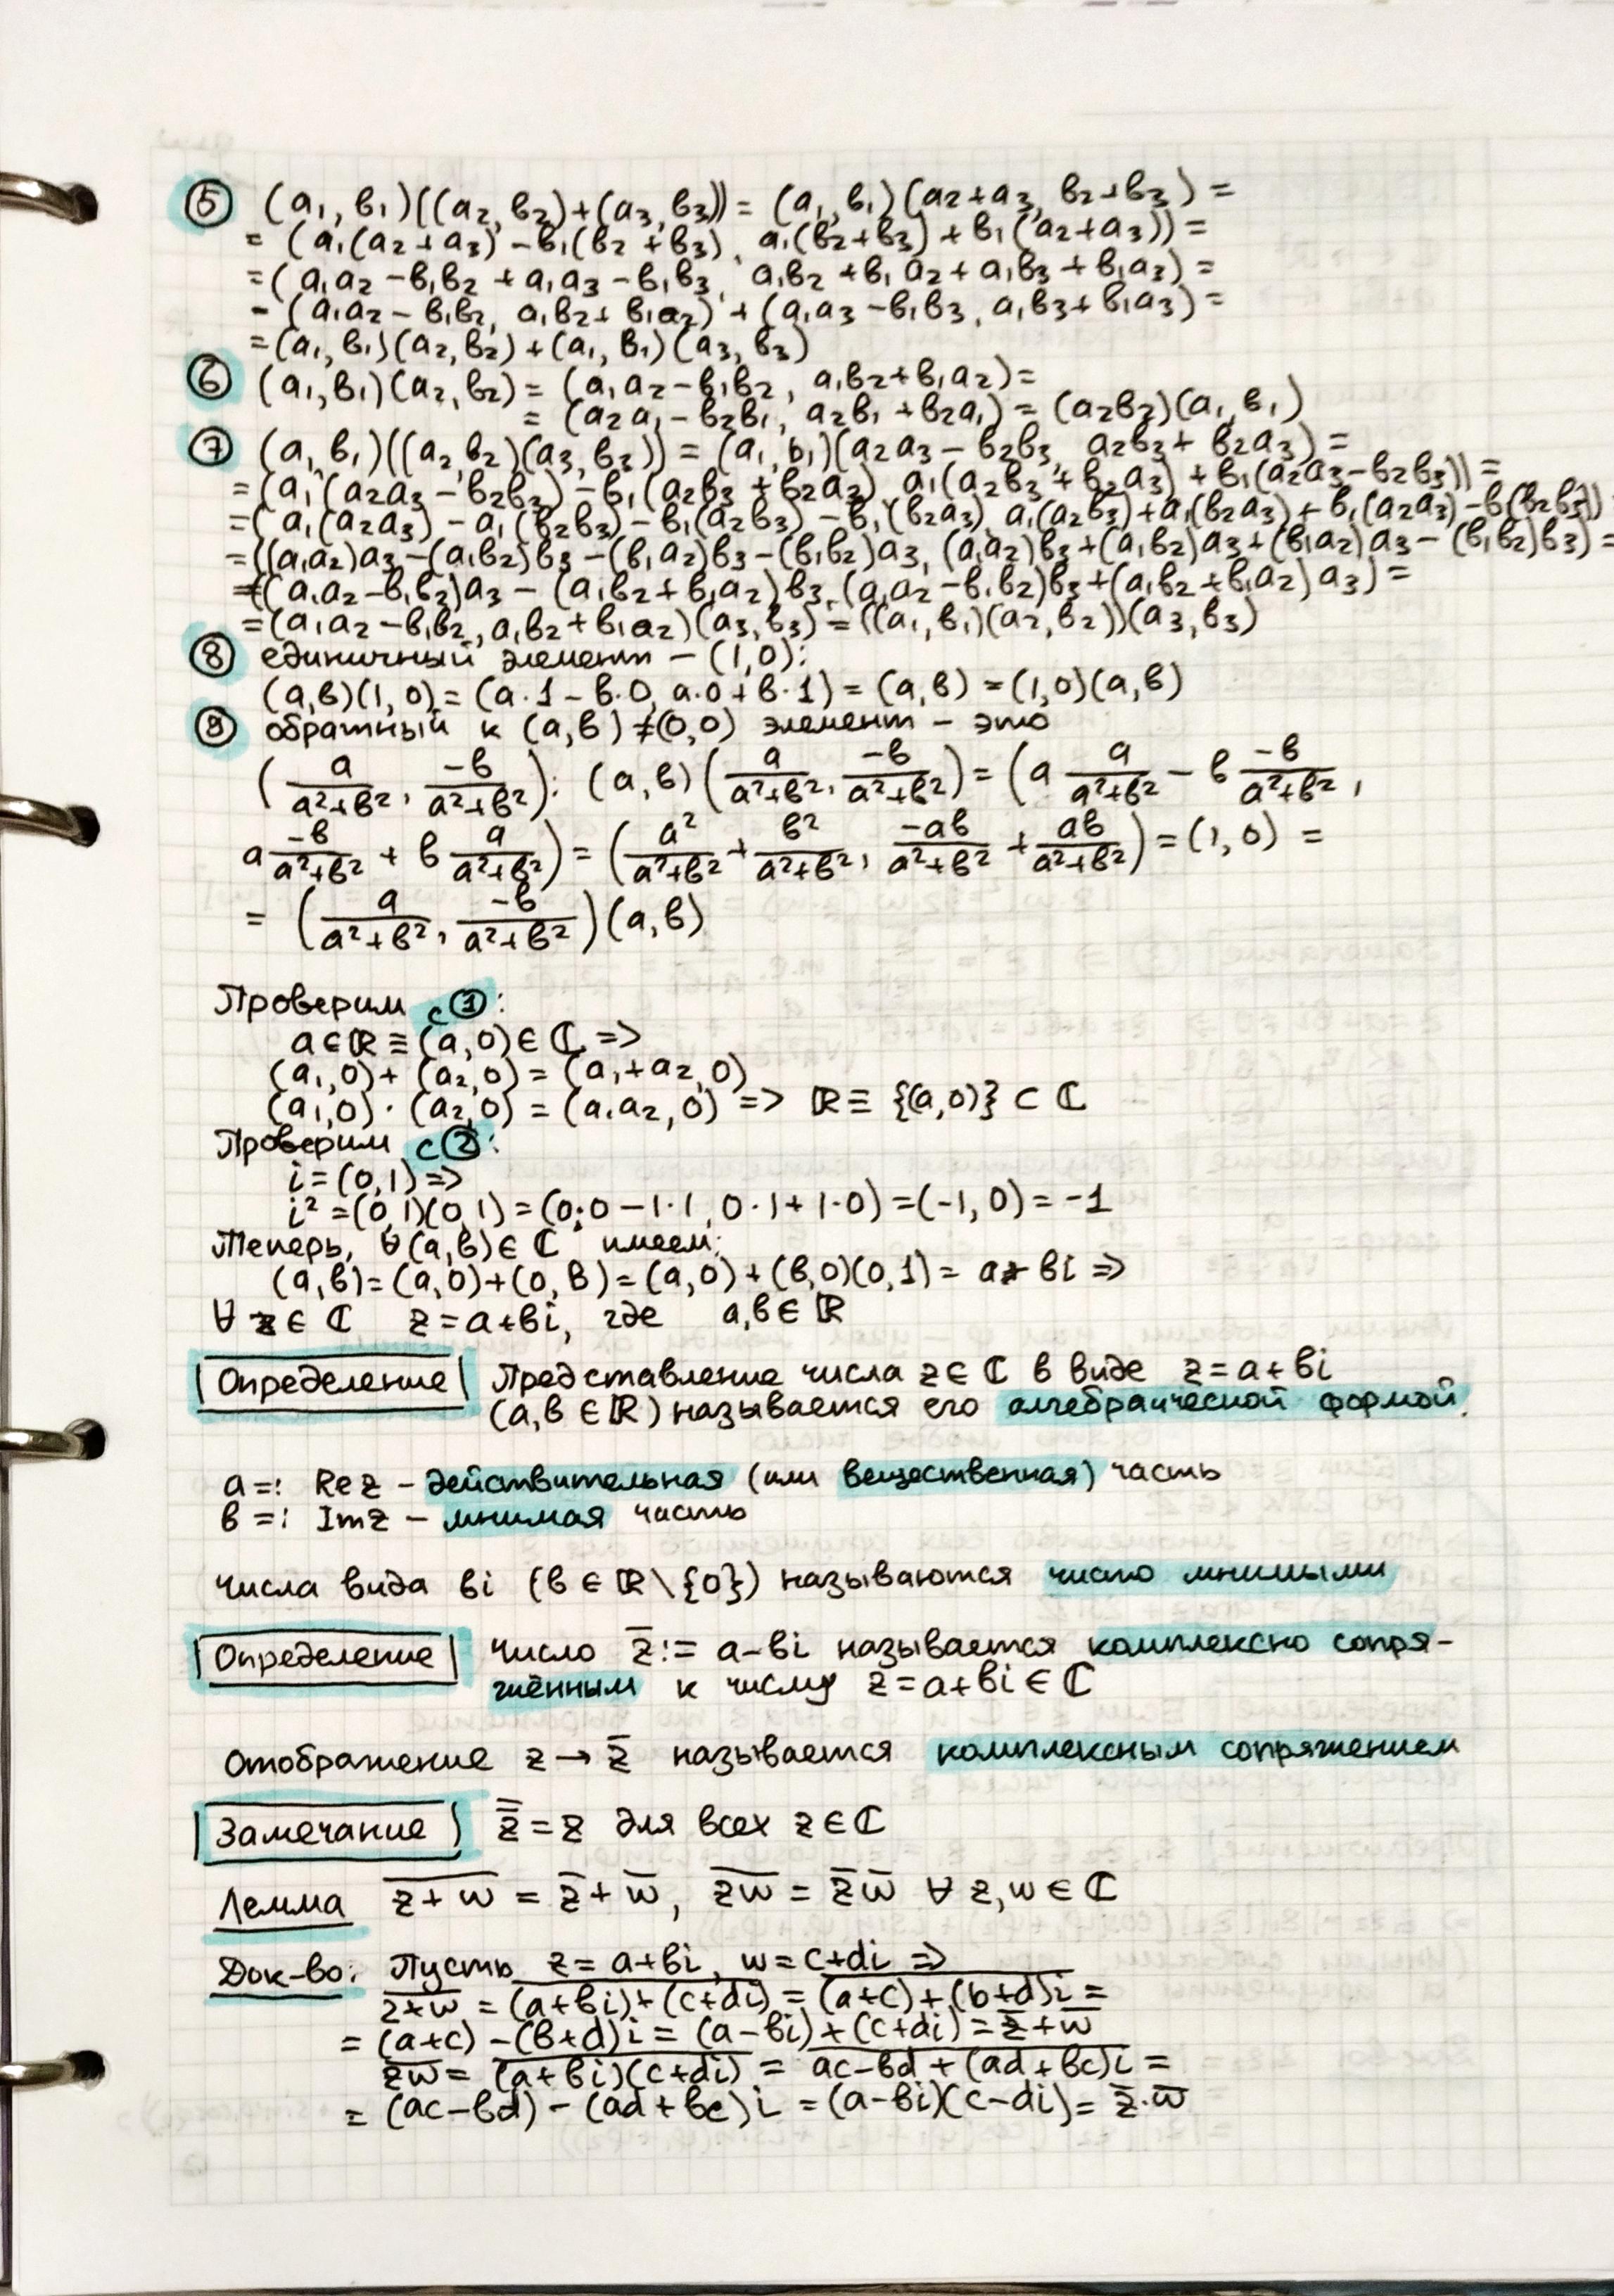 ⑤ (a₁, в₁)((a₂, в₂)+(a₃, в₃)) = (a₁, в₁)(a₂+a₃, в₂+в₃) =
= (a₁(a₂+a₃) - в₁(в₂+в₃), a₁(в₂+в₃) + в₁(a₂+a₃)) =
= (a₁a₂ - в₁в₂ + a₁a₃ - в₁в₃, a₁в₂ + в₁a₂ + a₁в₃ + в₁a₃) =
= (a₁a₂ - в₁в₂, a₁в₂ + в₁a₂) + (a₁a₃ - в₁в₃, a₁в₃ + в₁a₃) =
= (a₁, в₁)(a₂, в₂) + (a₁, в₁)(a₃, в₃)
⑥ (a₁, в₁)(a₂, в₂) = (a₁a₂ - в₁в₂, a₁в₂ + в₁a₂) =
= (a₂a₁ - в₂в₁, a₂в₁ + в₂a₁) = (a₂в₂)(a₁, в₁)
⑦ (a₁, в₁)((a₂, в₂)(a₃, в₃)) = (a₁, в₁)(a₂a₃ - в₂в₃, a₂в₃ + в₂a₃) =
= (a₁(a₂a₃ - в₂в₃) - в₁(a₂в₃ + в₂a₃), a₁(a₂в₃ + в₂a₃) + в₁(a₂a₃ - в₂в₃)) =
= (a₁(a₂a₃) - a₁(в₂в₃) - в₁(a₂в₃) - в₁(в₂a₃), a₁(a₂в₃) + a₁(в₂a₃) + в₁(a₂a₃) - в(в₂в₃))
= ((a₁a₂)a₃ - (a₁в₂)в₃ - (в₁a₂)в₃ - (в₁в₂)a₃, (a₁a₂)в₃ + (a₁в₂)a₃ + (в₁a₂)a₃ - (в₁в₂)в₃) =
= ((a₁a₂ - в₁в₂)a₃ - (a₁в₂ + в₁a₂)в₃, (a₁a₂ - в₁в₂)в₃ + (a₁в₂ + в₁a₂)a₃) =
= (a₁a₂ - в₁в₂, a₁в₂ + в₁a₂)(a₃, в₃) = ((a₁, в₁)(a₂, в₂))(a₃, в₃)
⑧ единичный элемент - (1,0):
(a,в)(1,0) = (a·1 - в·0, a·0 + в·1) = (a,в) = (1,0)(a,в)
⑨ обратный к (a,в) ≠ (0,0) элемент - это
(a/(a²+в²), -в/(a²+в²)): (a,в)(a/(a²+в²), -в/(a²+в²)) = (a a/(a²+в²) - в -в/(a²+в²),
a -в/(a²+в²) + в a/(a²+в²)) = (a²/(a²+в²) + в²/(a²+в²), -aв/(a²+в²) + aв/(a²+в²)) = (1,0) =
= (a/(a²+в²), -в/(a²+в²))(a,в)
Проверим с①:
a∈ℝ ≡ (a,0)∈ℂ =>
(a₁,0) + (a₂,0) = (a₁+a₂,0)
(a₁,0) · (a₂,0) = (a₁a₂,0) => ℝ ≡ {(a,0)} ⊂ ℂ
Проверим с②:
i = (0,1) =>
i² = (0,1)(0,1) = (0·0 - 1·1, 0·1 + 1·0) = (-1,0) = -1
Теперь, ∀(a,в)∈ℂ имеем:
(a,в) = (a,0) + (0,в) = (a,0) + (в,0)(0,1) = a + вi =>
∀ z∈ℂ z = a+вi, где a,в∈ℝ
Определение Представление числа z∈ℂ в виде z = a+вi
(a,в∈ℝ) называется его алгебраической формой.
a =: Re z - действительная (или вещественная) часть
в =: Im z - мнимая часть
Числа вида вi (в∈ℝ\{0}) называются чисто мнимыми
Определение Число z̅ := a-вi называется комплексно сопря-
жённым к числу z = a+вi∈ℂ
Отображение z → z̅ называется комплексным сопряжением
Замечание z̿ = z для всех z∈ℂ
Лемма z̅+̅w̅ = z̅ + w̅, z̅w̅ = z̅ w̅ ∀ z,w∈ℂ
Док-во: Пусть z = a+вi, w = c+di =>
z̅+̅w̅ = (̅a̅+̅в̅i̅)̅+̅(̅c̅+̅d̅i̅)̅ = (̅a̅+̅c̅)̅+̅(̅b̅+̅d̅)̅i̅ =
= (a+c) - (в+d)i = (a-вi) + (c+di) = z̅ + w̅
z̅w̅ = (̅a̅+̅в̅i̅)̅(̅c̅+̅d̅i̅)̅ = a̅c̅-̅в̅d̅+̅(̅a̅d̅+̅в̅c̅)̅i̅ =
= (ac-вd) - (ad+вc)i = (a-вi)(c-di) = z̅·w̅